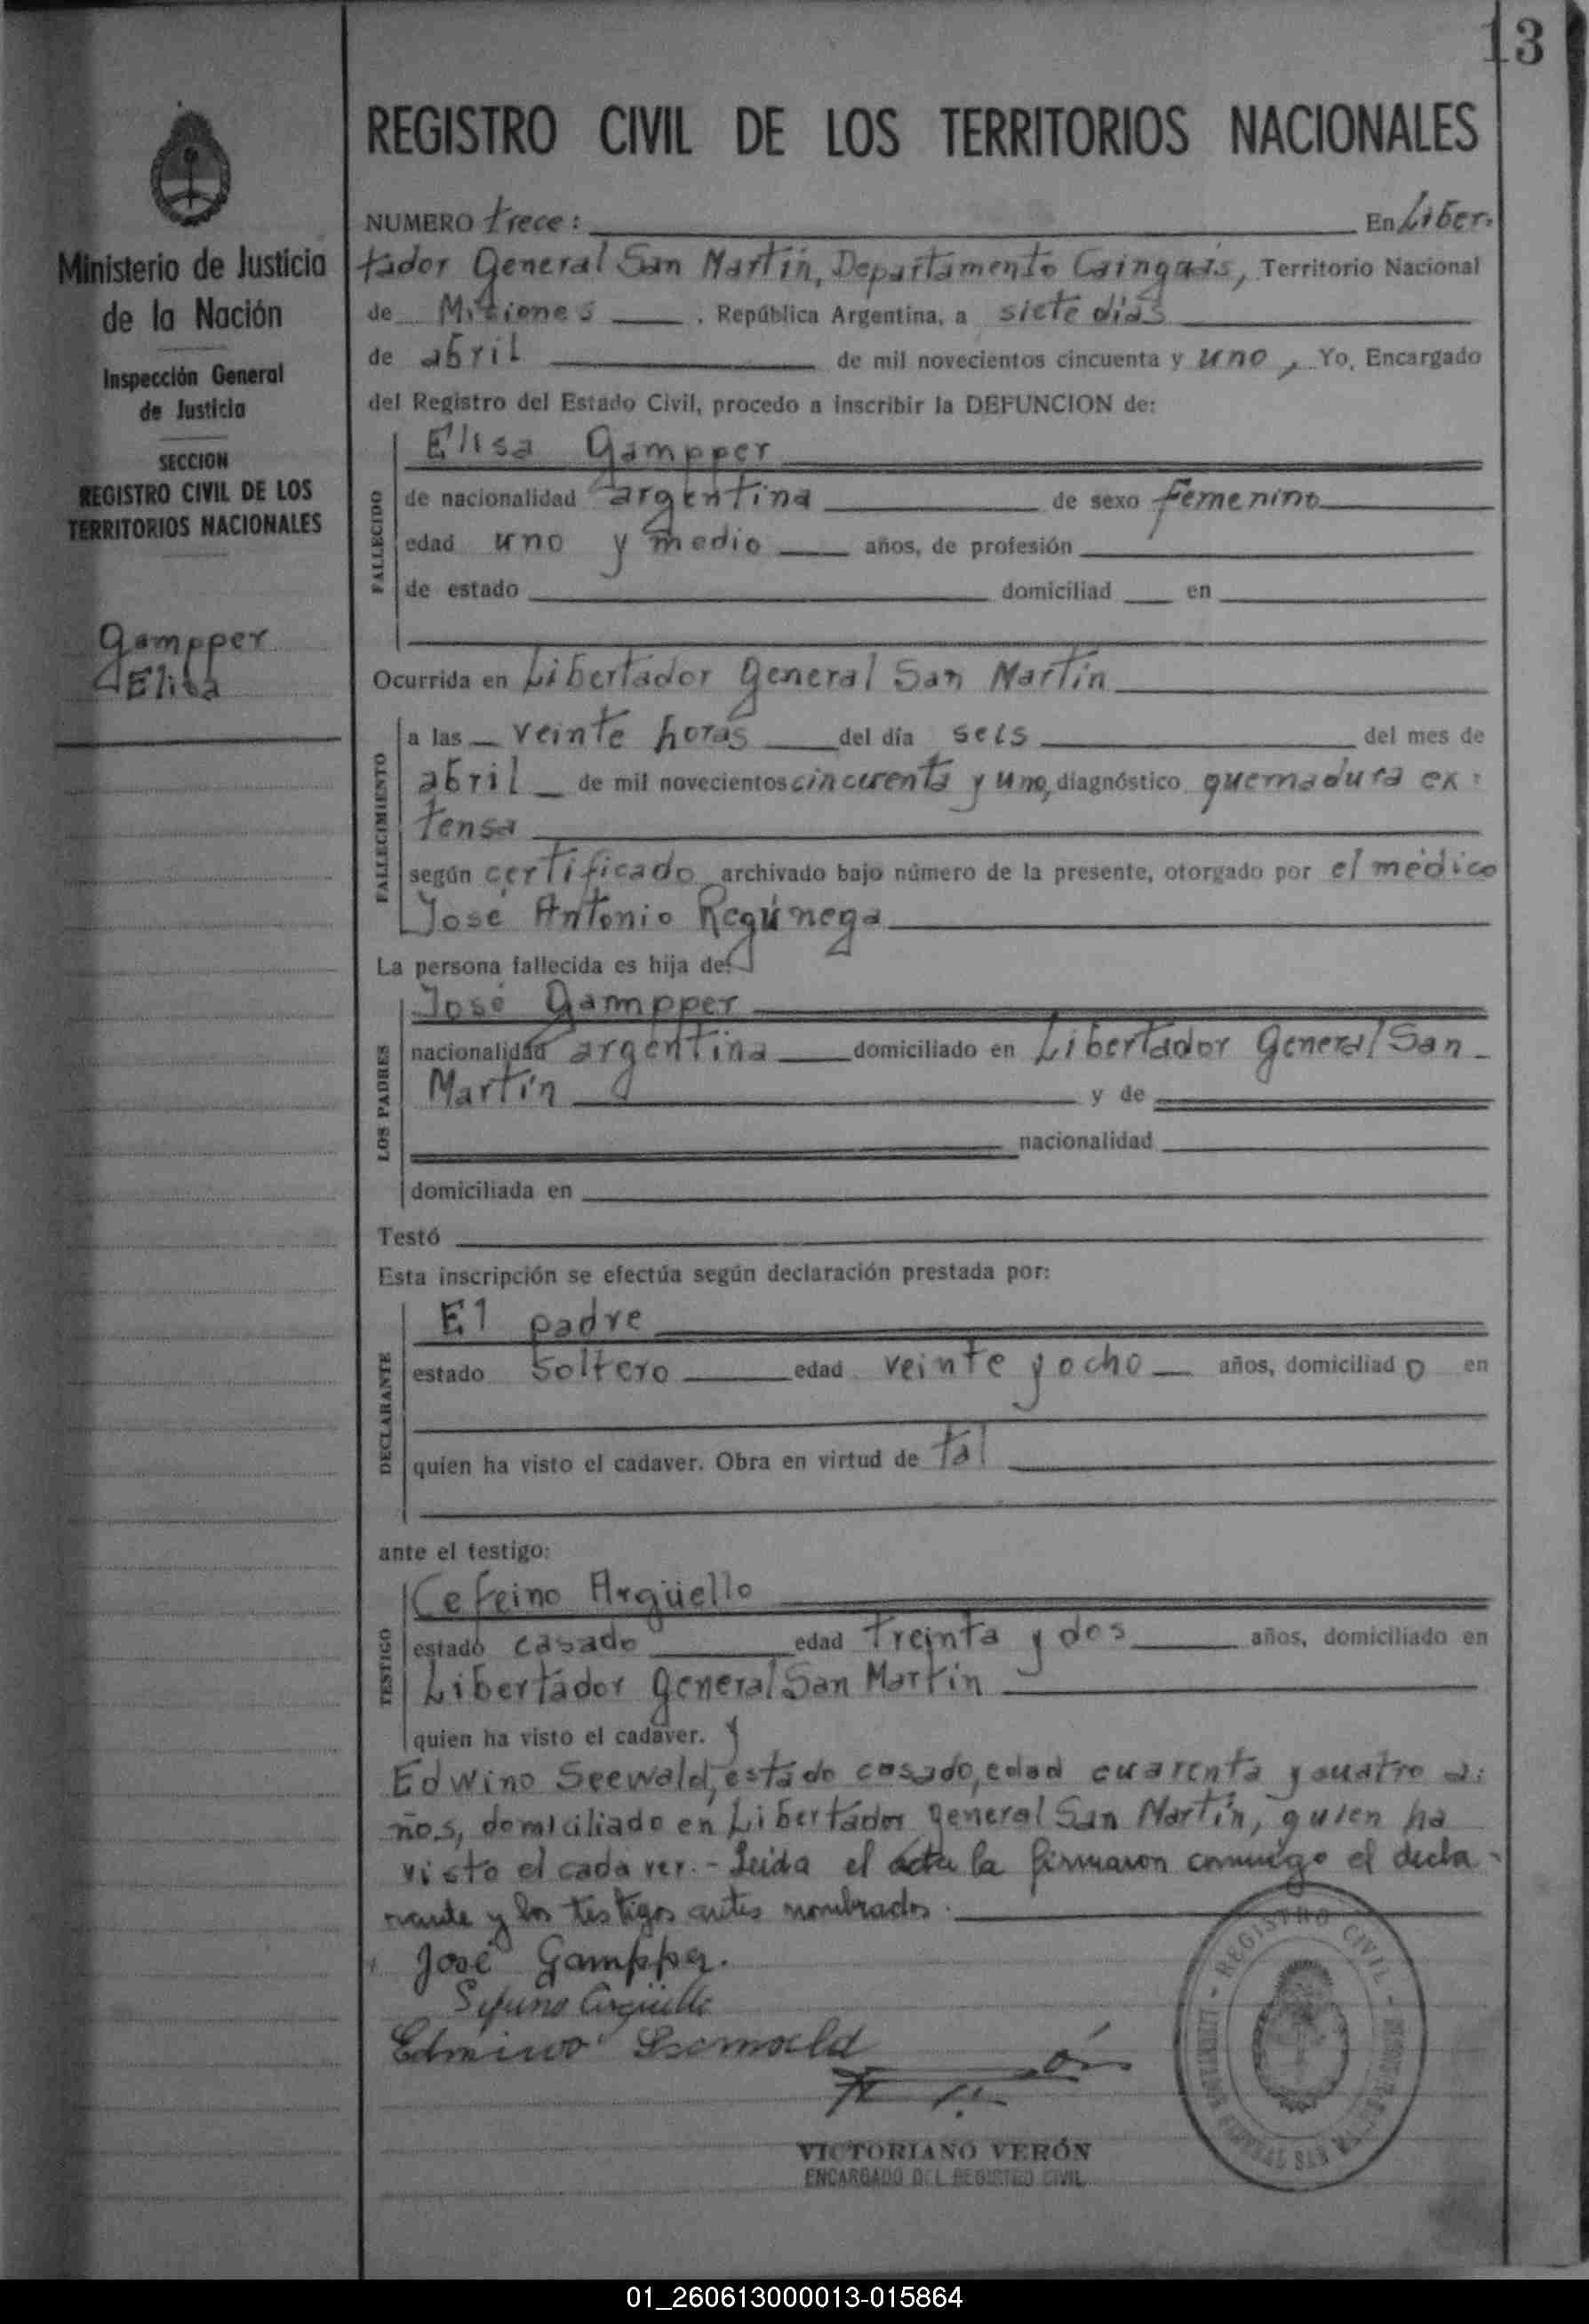 13
REGISTRO CIVIL DE LOS TERRITORIOS NACIONALES
Ministerio de Justicia
de la Nación
Inspección General
de Justicia
SECCION
REGISTRO CIVIL DE LOS
TERRITORIOS NACIONALES
Gampper
Elisa
NUMERO trece: En Liber-
tador General San Martín, Departamento Cainguás, Territorio Nacional
de Misiones . República Argentina, a siete días
de abril de mil novecientos cincuenta y uno, Yo, Encargado
del Registro del Estado Civil, procedo a inscribir la DEFUNCION de:
FALLECIDO
Elisa Gampper
de nacionalidad argentina de sexo femenino
edad uno y medio años, de profesión
de estado domiciliad en
Ocurrida en Libertador General San Martín
FALLECIMIENTO
a las veinte horas del día seis del mes de
abril de mil novecientos cincuenta y uno, diagnóstico quemadura ex-
tensa
según certificado archivado bajo número de la presente, otorgado por el médico
José Antonio
La persona fallecida es hija de:
LOS PADRES
José Gampper
nacionalidad argentina domiciliado en Libertador General San
Martín y de
nacionalidad
domiciliada en
Testó
Esta inscripción se efectúa según declaración prestada por:
DECLARANTE
El padre
estado soltero edad veinte y ocho años, domiciliado en
quien ha visto el cadaver. Obra en virtud de tal
ante el testigo:
TESTIGO
Cefeino Argüello
estado casado edad treinta y dos años, domiciliado en
Libertador General San Martín
quien ha visto el cadaver. y
Edwino Seewald, estado casado, edad cuarenta y cuatro a-
ños, domiciliado en Libertador General San Martín, quien ha
visto el cadaver. - Leida el acta la firmaron conmigo el decla-
rante y los testigos antes nombrados.
José Gampper.
Argüello
VICTORIANO VERÓN
ENCARGADO DEL REGISTRO CIVIL
REGISTRO CIVIL
01_260613000013-015864